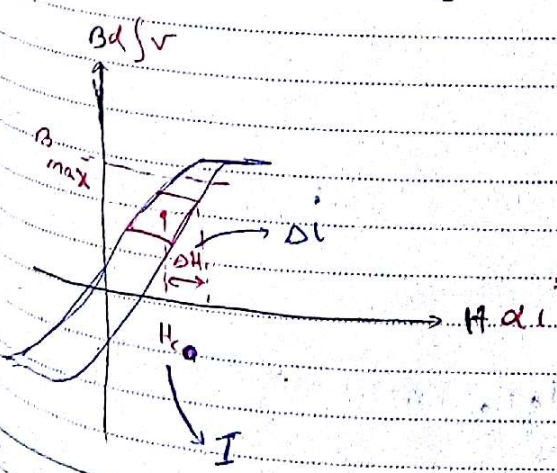 B α ∫ v
B max
Δi
ΔH
H α i
I